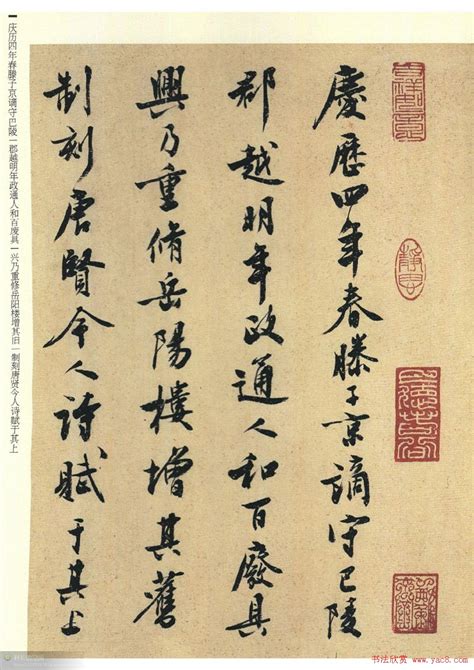 慶歷四年春滕子京謫守巴陵
郡越明年政通人和百廢具
興乃重脩岳陽樓增其舊
制刻唐賢今人詩賦于其上
庆历四年春滕子京谪守巴陵|郡越明年政通人和百废具|兴乃重修岳阳楼增其旧|制刻唐贤今人诗赋于其上
书法欣赏 www.yac8.com